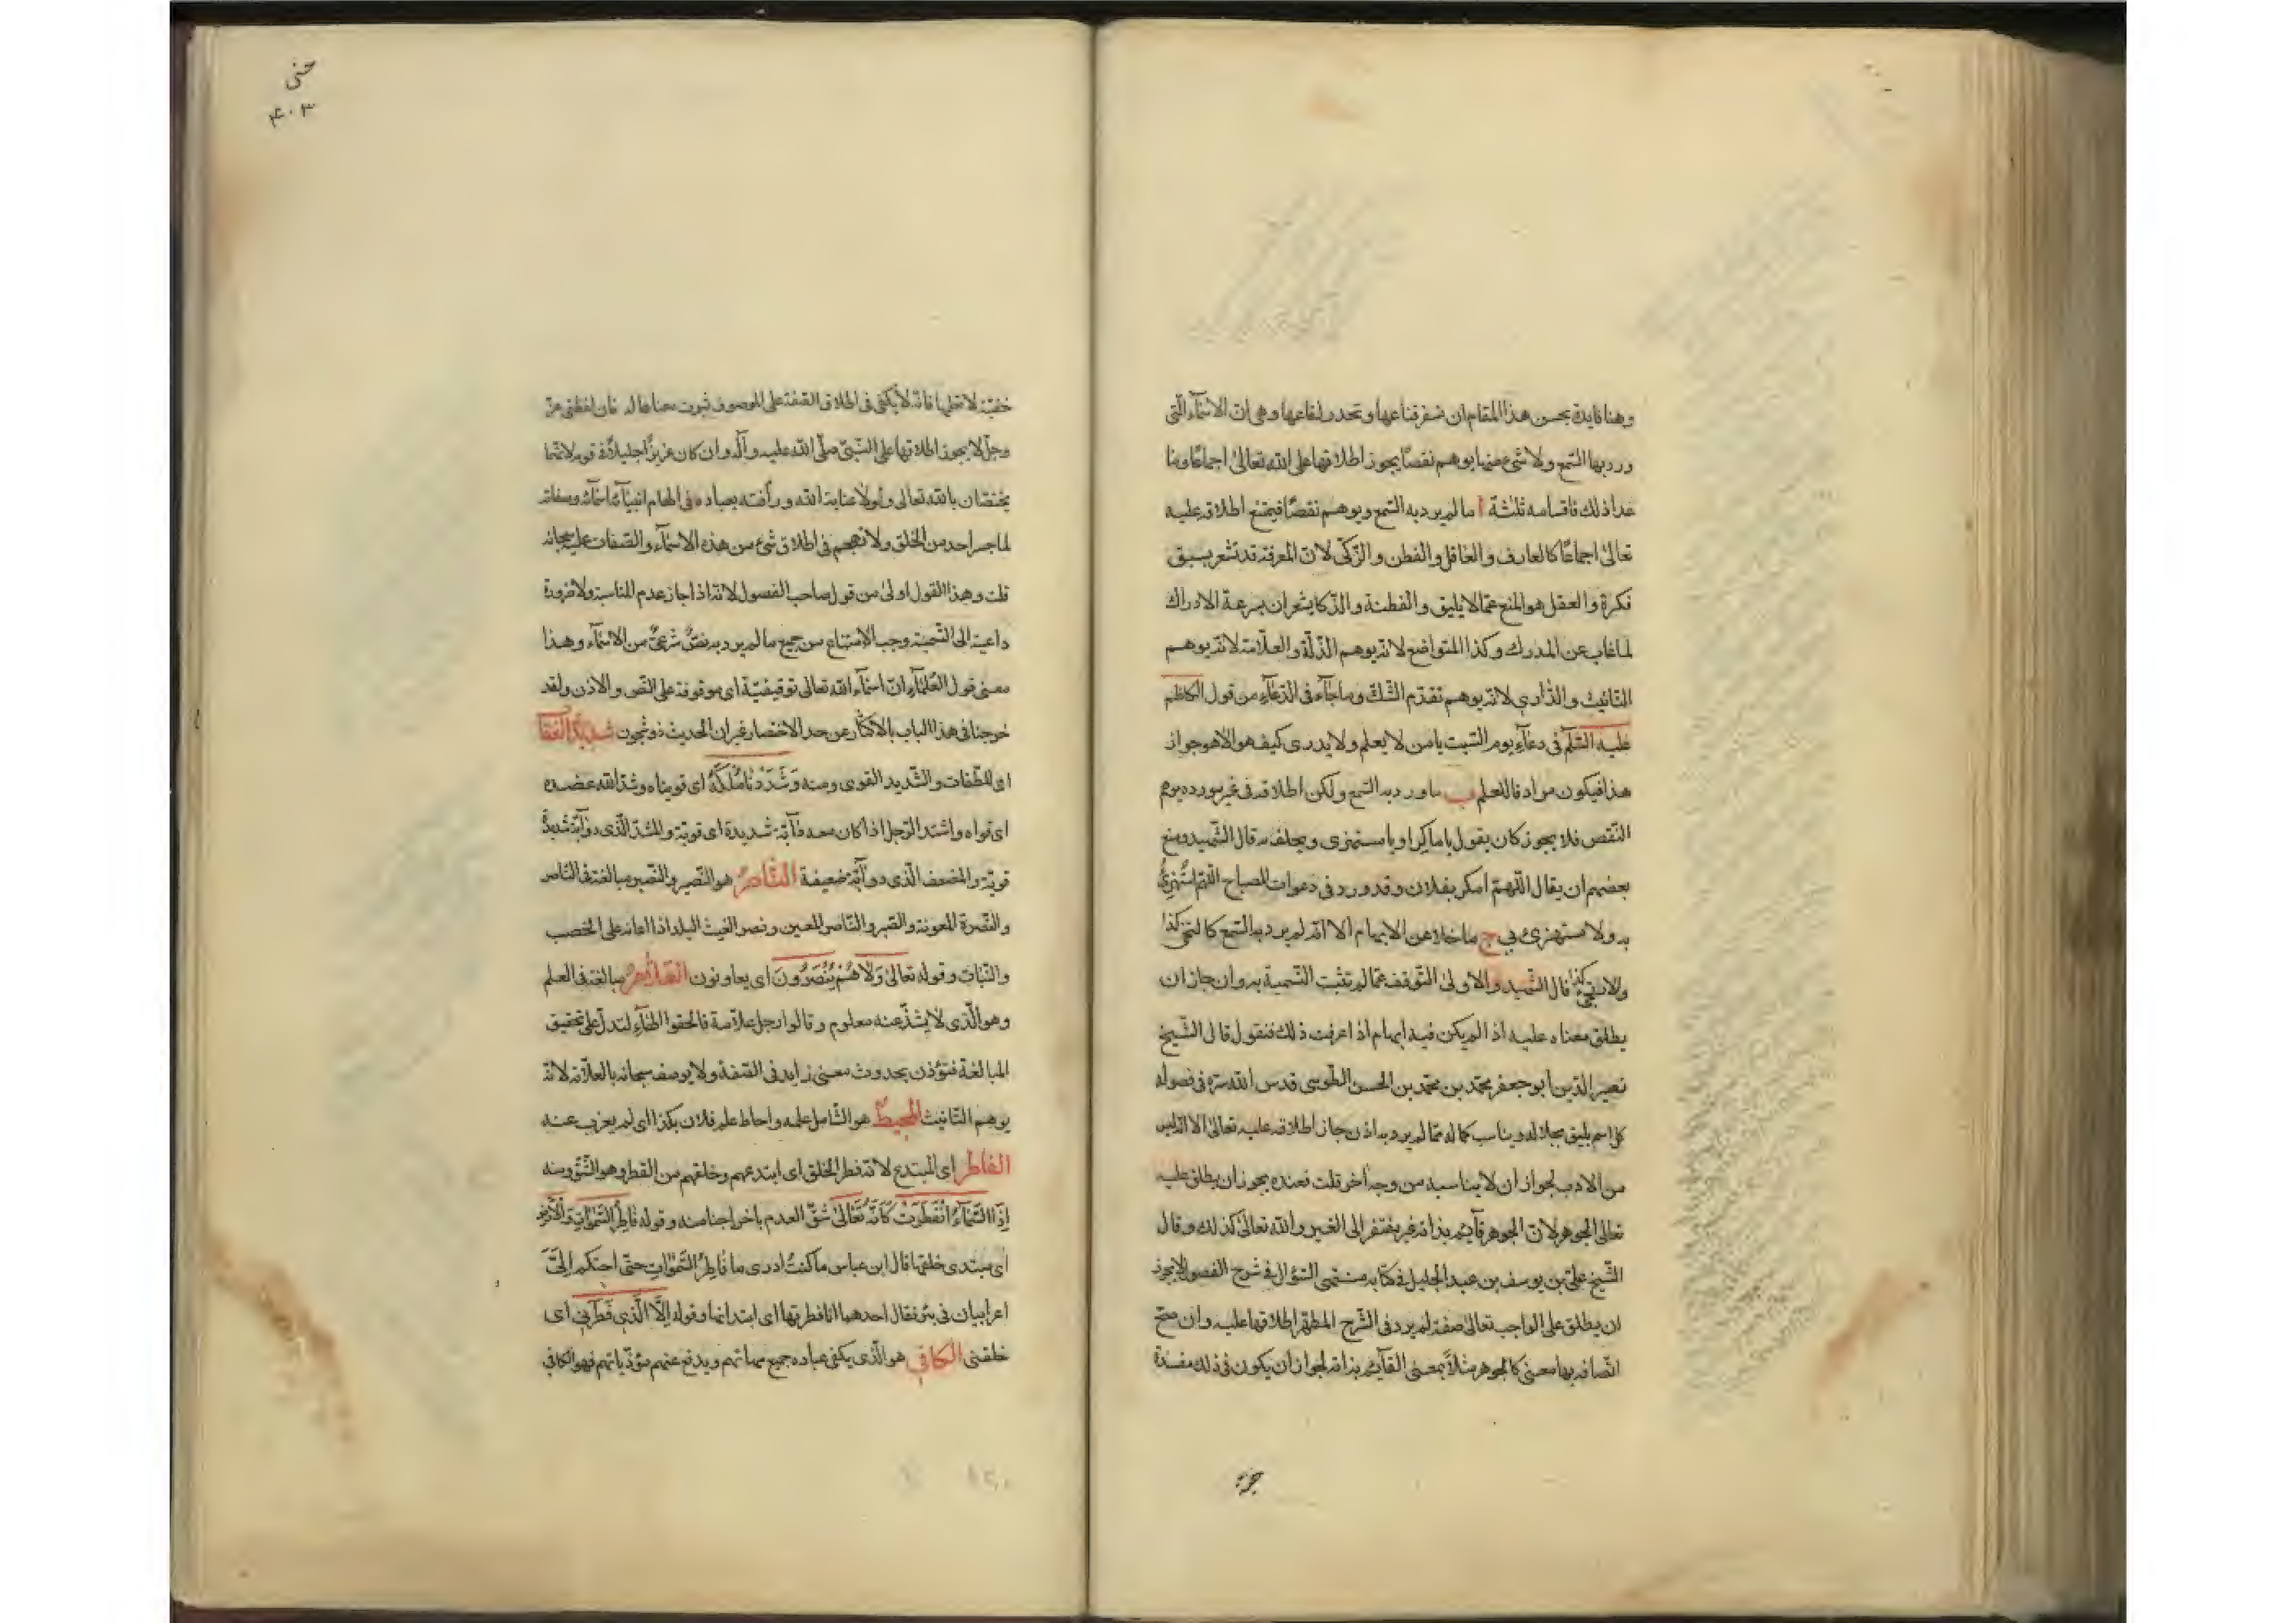 وهنا فايدة يحسن هذا المقام ان نسفر قناعها ونحدر لفاعها وهى ان الاسمآء التى
ورد بها السمع ولا شىء منها يوهم نقصًا يجوز اطلاقها على الله تعالى اجماعًا وما
عدا ذلك فاقسامه ثلثة أ ما لم يرد به السمع ويوهم نقصًا فيمتنع اطلاقه عليه
تعالى اجماعًا كالعارف والعاقل والفطن والذكى لان المعرفة قد تشعر بسبق
فكرة والعقل هو المنع عما لا يليق والفطنة والذكا يشعران بسرعة الادراك
لما غاب عن المدرك وكذا المتواضع لانه يوهم الذلة والعلامة لانه يوهم
التانيث والدارى لانه يوهم تقدم الشك وما جآء فى الدعآء من قول الكاظم
عليه السلم فى دعآء يوم السبت يا من لا يعلم ولا يدرى كيف هو الا هو جواز
هذا فيكون مرادفا للعلم ب ما ورد به السمع ولكن اطلاقه فى غير مورده يوهم
النقص فلا يجوز كان يقول يا ماكرا ويا مستهزى ويحلف به قال الشهيد ومنع
بعضهم ان يقال اللهم امكر بفلان وقد ورد فى دعوات المصباح اللهم استهزئ
به ولا تستهزئ بى ج ما خلا عن الايهام الا انه لم يرد به السمع كالنجى كذا
والاريحى كذا قال الشهيد والاولى التوقف عما لم تثبت التسمية به وان جاز ان
يطلق معناه عليه اذا لم يكن فيه ايهام اذا عرفت ذلك فنقول قال الشيخ
نصير الدين ابو جعفر محمد بن محمد بن الحسن الطوسى قدس الله سره فى فصوله
كل اسم يليق بجلاله ويناسب كماله مما لم يرد به اذن جاز اطلاقه عليه تعالى الا انه ليس
من الادب لجواز ان لا يناسبه من وجه آخر قلت فعنده يجوز ان يطلق عليه
تعالى الجوهر لان الجوهر قآيم بذاته غير مفتقر الى الغير والله تعالى كذلك وقال
الشيخ على بن يوسف بن عبد الجليل فى كتابه منتهى السؤال فى شرح الفصول لا يجوز
ان يطلق على الواجب تعالى صفة لم يرد فى الشرع المطهر اطلاقها عليه وان صح
اتصافه بها معنى كالجوهر مثلاً بمعنى القآيم بذاته لجواز ان يكون فى ذلك مفسدة
حنى
۴۰۳
خفية لا نعلمها فانه لا يكفى فى اطلاق الصفة على الموصوف ثبوت معناها له فان لفظتى عز
وجل لا يجوز اطلاقها على النبى صلى الله عليه وآله وان كان عزيزًا جليلاً فى قومه لانهما
يختصان بالله تعالى ولولا عناية الله ورأفته بعباده فى الهام انبيآئه اسمآئه وصفاته
لما جسر احد من الخلق ولا تهجم فى اطلاق شىء من هذه الاسمآء والصفات عليه سبحانه
قلت وهذا القول اولى من قول صاحب الفصول لانه اذا جاز عدم المناسبة ولا ضرورة
داعية الى التسمية وجب الامتناع من جميع ما لم يرد به نص شرعى من الاسمآء وهذا
معنى قول العلمآء ان اسمآء الله تعالى توقيفية اى موقوفة على النص والاذن ولقد
خرجنا فى هذا الباب بالاكثار عن حد الاختصار غير ان الحديث ذو شجون شديد العقا
اى للطغات والشديد القوى ومنه وشددنا ملكه اى قويناه وشد الله عضده
اى قواه واشتد الرجل اذا كان معه دآبة شديدة اى قوية والمشد الذى دوآبه شديدة
قوية والمضعف الذى دوآبه ضعيفة الناصر هو النصير والنصير مبالغة فى الناصر
والنصرة المعونة والنصير والناصر المعين ونصر الغيث البلد اذا اعانه على الخصب
والنبات وقوله تعالى ولا هم ينصرون اى يعاونون العلام مبالغة فى العلم
وهو الذى لا يشذ عنه معلوم وقالوا رجل علامة فالحقوا الهآء لتدل على تحقيق
المبالغة فتؤذن بحدوث معنى زايد فى الصفة ولا يوصف سبحانه بالعلامة لانه
يوهم التانيث المحيط هو الشامل علمه واحاط علم فلان بكذا اى لم يعزب عنه
الفاطر اى المبتدع لانه فطر الخلق اى ابتدعهم وخلقهم من الفطر وهو الشق ومنه
إذا السمآء انفطرت كانه تعالى شق العدم باخراجنا منه وقوله فاطر السموات والارض
اى مبتدى خلقها قال ابن عباس ما كنت ادرى ما فاطر السموات حتى احتكم الىّ
اعرابيان فى بئر فقال احدهما انا فطرتها اى ابتداتها وقوله إلا الذى فطرنى اى
خلقنى الكافى هو الذى يكفى عباده جميع مهماتهم ويدفع عنهم مؤذياتهم فهو الكافى